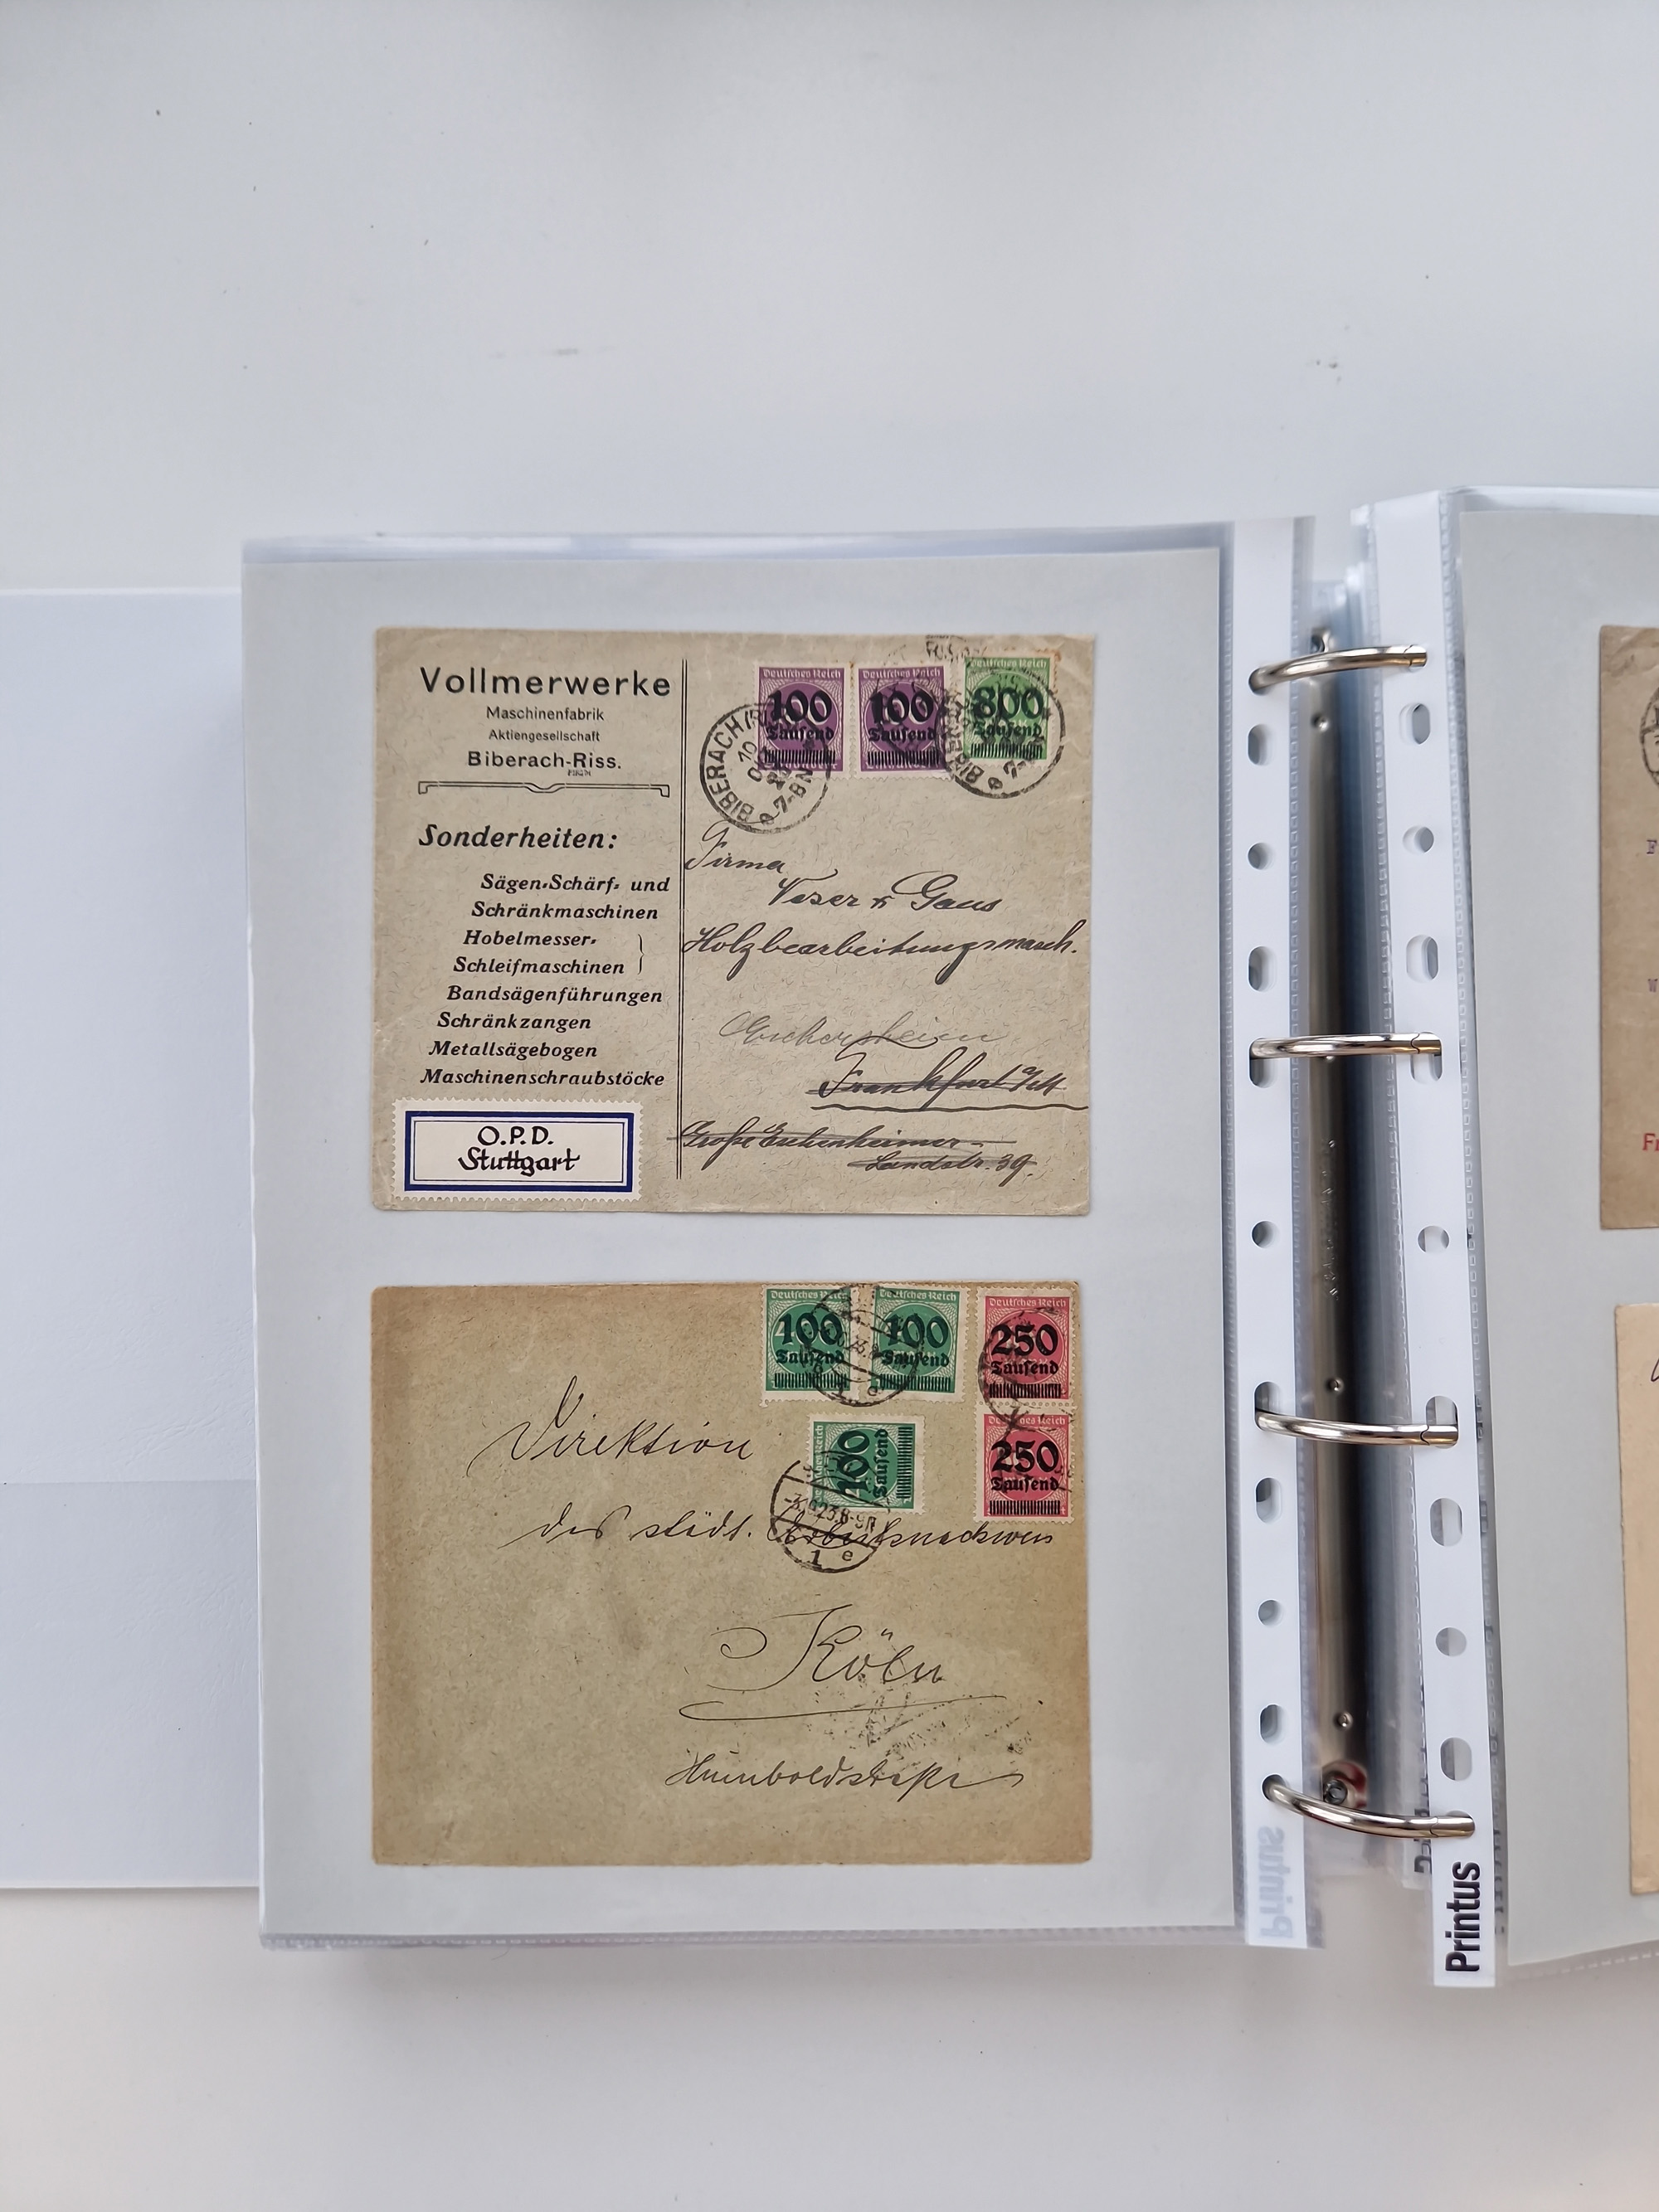 Vollmerwerke
Maschinenfabrik
Aktiengesellschaft
Biberach-Riss.
Sonderheiten:
Sägen-Schärf- und
Schränkmaschinen
Hobelmesser-
Schleifmaschinen
Bandsägenführungen
Schränkzangen
Metallsägebogen
Maschinenschraubstöcke
O.P.D.
Stuttgart
Deutsches Reich
100
Tausend
Deutsches Reich
100
Tausend
Deutsches Reich
800
Tausend
BIBERACH
7-8N
Firma
Gaus
Holzbearbeitungsmasch.
Frankfurt a/M
Große Eschenheimer-
Landstr. 39.
Deutsches Reich
100
Tausend
Deutsches Reich
100
Tausend
Deutsches Reich
250
Tausend
100
Tausend
Deutsches Reich
250
Tausend
1 e
Direktion
des städt. Arbeitsnachweis
Köln
Humboldstraße
Printus
Printus